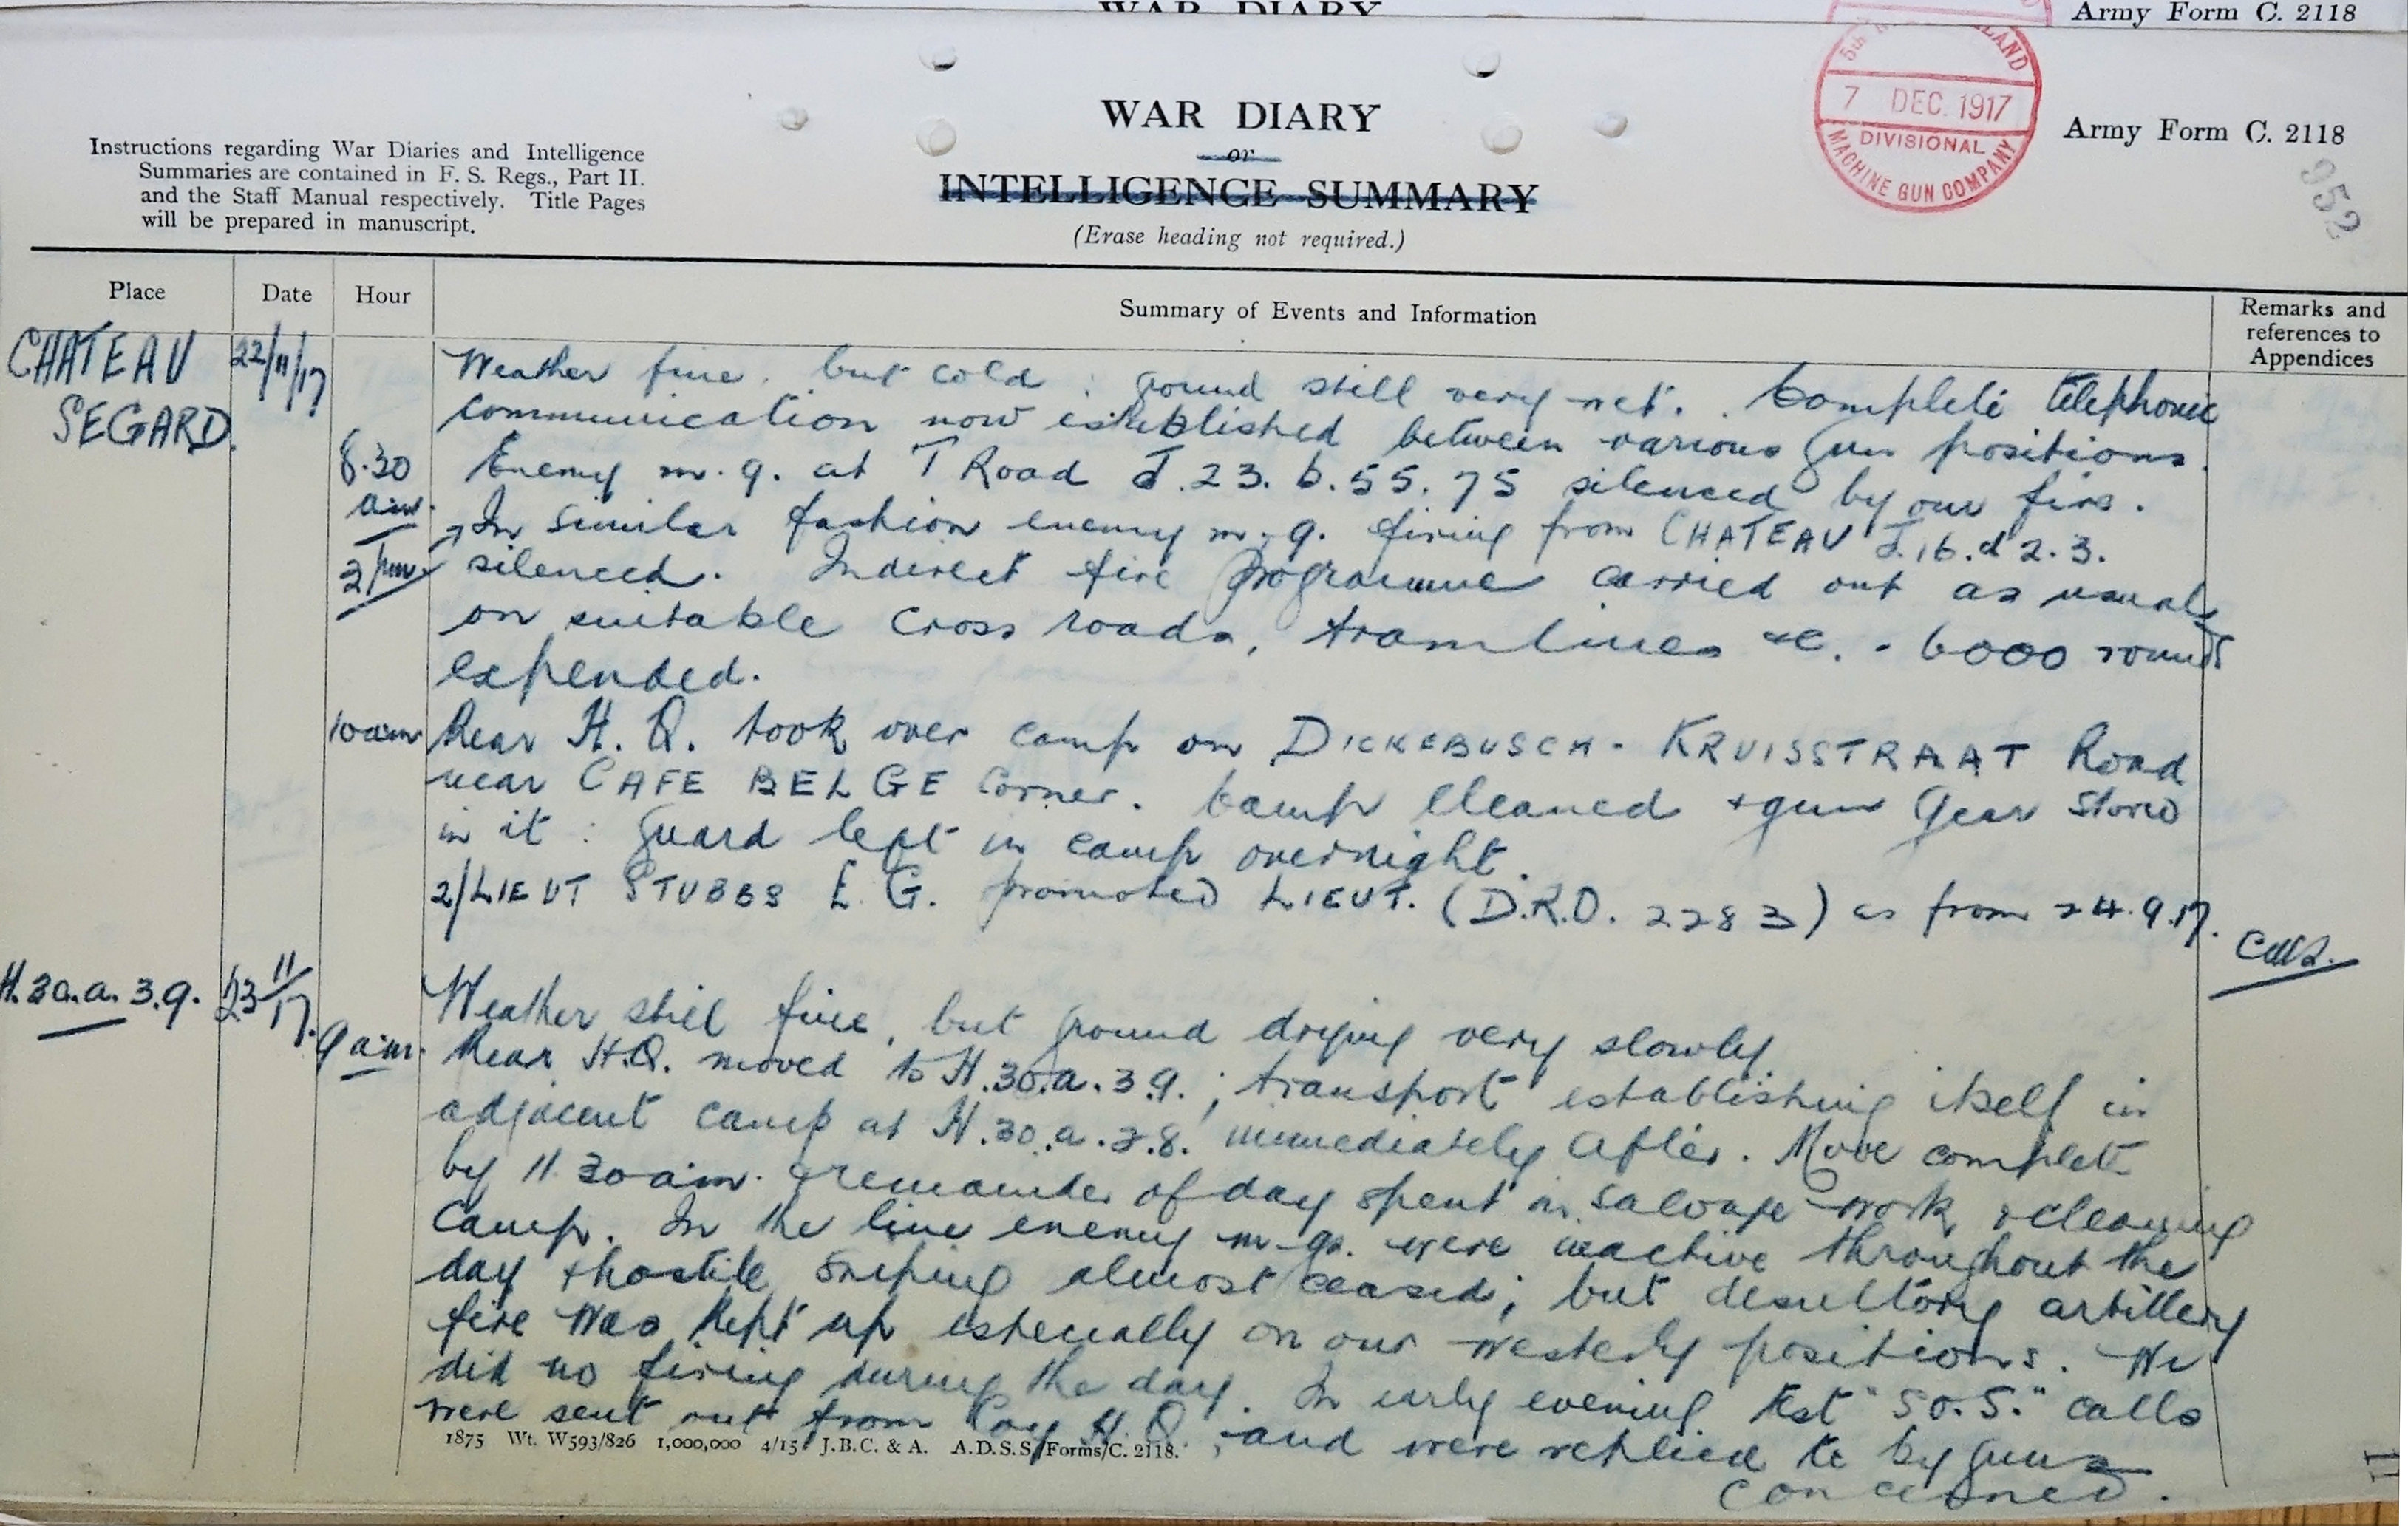 WAR DIARY
Army Form C. 2118
5th LAND
7 DEC. 1917
DIVISIONAL
MACHINE GUN COMPANY
WAR DIARY
or
INTELLIGENCE SUMMARY
(Erase heading not required.)
Army Form C. 2118
952
Instructions regarding War Diaries and Intelligence
Summaries are contained in F. S. Regs., Part II.
and the Staff Manual respectively. Title Pages
will be prepared in manuscript.
Place Date Hour Summary of Events and Information Remarks and
references to
Appendices
CHATEAU 22/11/17 Weather fine, but cold : ground still very wet. Complete telephonic
SEGARD. communication now established between various gun positions.
8.30 Enemy m.g. at T Road J.23.b.55.75 silenced by our fire.
am. In similar fashion enemy m.g. firing from CHATEAU J.16.d 2.3.
2 pm silenced. Indirect fire programme carried out as usual
on suitable cross roads, tramlines &c. - 6000 rounds
expended.
10am Rear H.Q. took over camp on DICKEBUSCH - KRUISSTRAAT Road
near CAFE BELGE Corner. Camp cleaned & gun gear stored
in it : guard left in camp overnight.
2/LIEUT STUBBS E. G. promoted LIEUT. (D.R.O. 2283) as from 24.9.17.
H.30.a.3.9. 23/11/17. Weather still fine, but ground drying very slowly
9 am. Rear H.Q. moved to H.30.a.3.9. ; transport establishing itself in
adjacent camp at H.30.a.3.8. immediately after. Move complete
by 11.30am. & remainder of day spent in salvage work & cleaning
camp. In the line enemy m-gs. were inactive throughout the
day & hostile sniping almost ceased; but desultory artillery
fire was kept up especially on our westerly positions. We
did no firing during the day. In early evening test "S.O.S." calls
were sent out from Coy H.Q., and were replied to by guns
concerned.
1875 Wt. W593/826 1,000,000 4/15 J.B.C. & A. A.D.S.S./Forms/C. 2118.